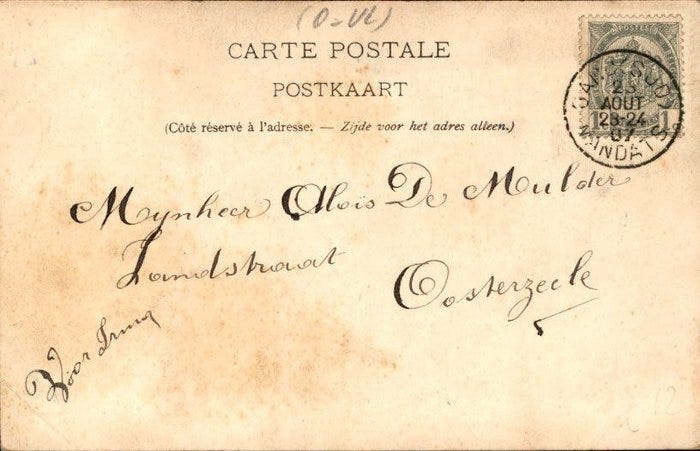 (O-VL)
CARTE POSTALE
POSTKAART
(Côté réservé à l'adresse. — Zijde voor het adres alleen.)
POSTES
1 1
GAND (SUD)
23
AOUT
23-24
07
MANDATS
Mynheer Aloïs De Mulder
Landstraat
Oosterzeele
Voor
12